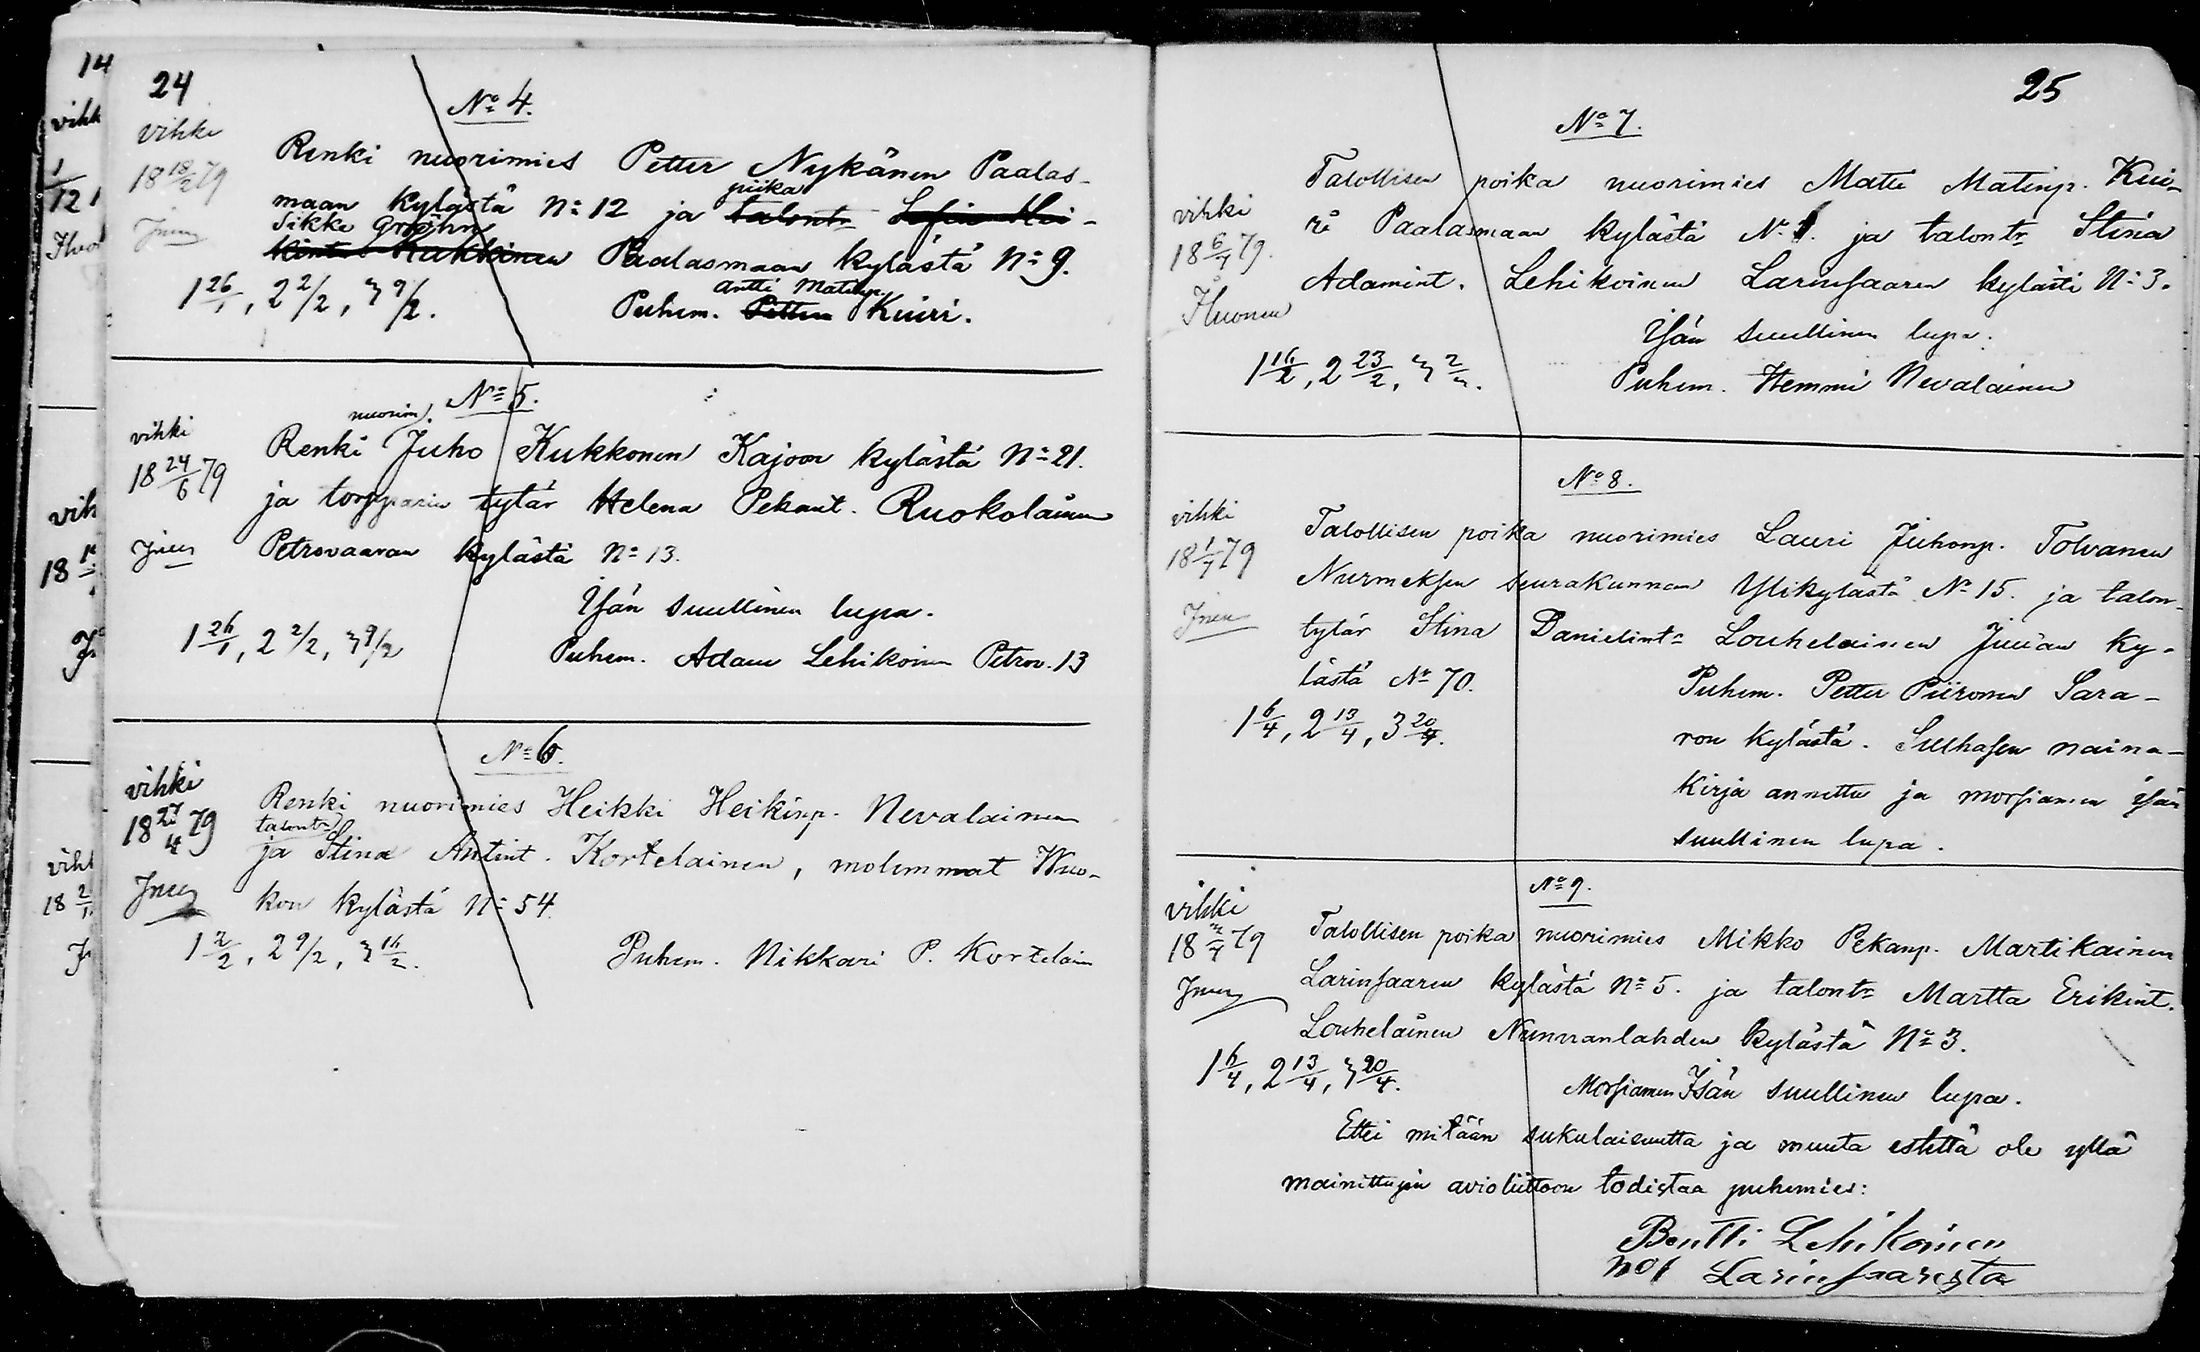 24
No 4.
vihki
18 18/2 79
Renki nuorimies Petter Nykänen Paalas-
piika
maan kylästä No 12 ja talontr Sofia Hei-
Sikke Gröhn
Kukkinen Paalasmaan kylästä No 9.
Antti Matinp.
1 26/1, 2 2/2, 3 9/2. Puhem. Petter Kuiri.
No 5.
nuorim.
vihki
18 24/6 79
Renki Juho Kukkonen Kajoon kylästä No 21.
ja torpparin tytär Helena Pekant. Ruokolainen
Petrovaaran kylästä No 13.
Isän suullinen lupa.
1 26/1, 2 2/2, 3 9/2 Puhem. Adam Lehikoinen Petrov. 13
No 6.
vihki
18 27/4 79
Renki nuorimies Heikki Heikinp. Nevalainen
talontr
ja Stina Antint. Kortelainen, molemmat Wuo-
kon kylästä No 54.
1 2/2, 2 9/2, 3 16/2. Puhem. Nikkari P. Kortelain
25
No 7.
Talollisen poika nuorimies Matti Matinp. Kui-
vihki
18 6/4 79.
ri Paalasmaan kylästä No 1. ja talontr Stina
Adamint. Lehikoinen Larinsaaren kylästä No 3.
Ihonen
Isän suullinen lupa.
1 16/2, 2 23/2, 3 2/3. Puhem. Hemmi Nevalainen
No 8.
vihki
18 1/7 79
Talollisen poika nuorimies Lauri Juhonp. Tolvanen
Nurmeksen seurakunnan Ylikylästä No 15. ja talon-
tytär Stina Danielintr Louhelainen Juuan ky-
lästä No 70. Puhem. Petter Piironen Sara-
1 6/4, 2 13/4, 3 20/4.
von kylästä. Sulhasen naima-
kirja annettu ja morsiamen isän
suullinen lupa.
No 9.
vihki
Talollisen poika nuorimies Mikko Pekanp. Martikainen
Larinsaaren kylästä No 5. ja talontr Martta Erikint.
Louhelainen Nunnanlahden kylästä No 3.
1 6/4, 2 13/4, 3 20/4. Morsiamen Isän suullinen lupa.
Ettei mitään sukulaisuutta ja muuta estettä ole yllä
mainittujen avioliittoon todistaa puhemies:
Bentti Lehikoinen
No 1 Larinsaaresta